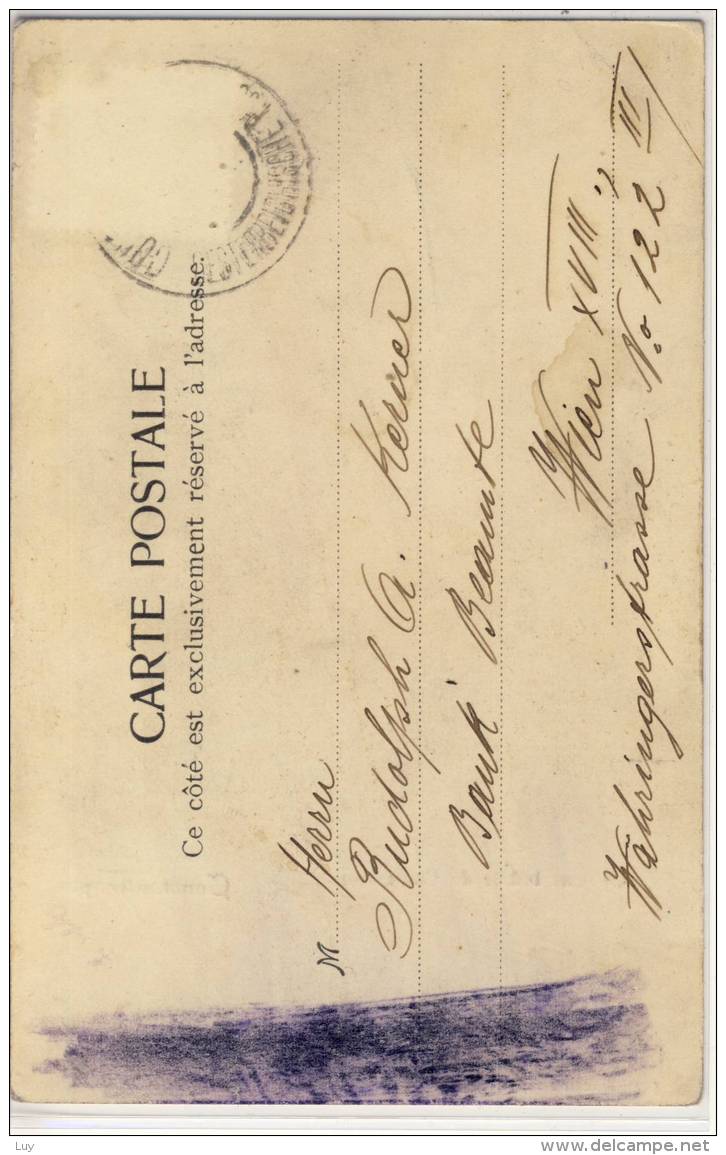 CARTE POSTALE
Ce côté est exclusivement réservé à l'adresse.
M Herrn
Rudolph A. Kerner
Bank Beamte
Wien XVIII.,
Währingerstrasse No 122 III
Luy
www.delcampe.net